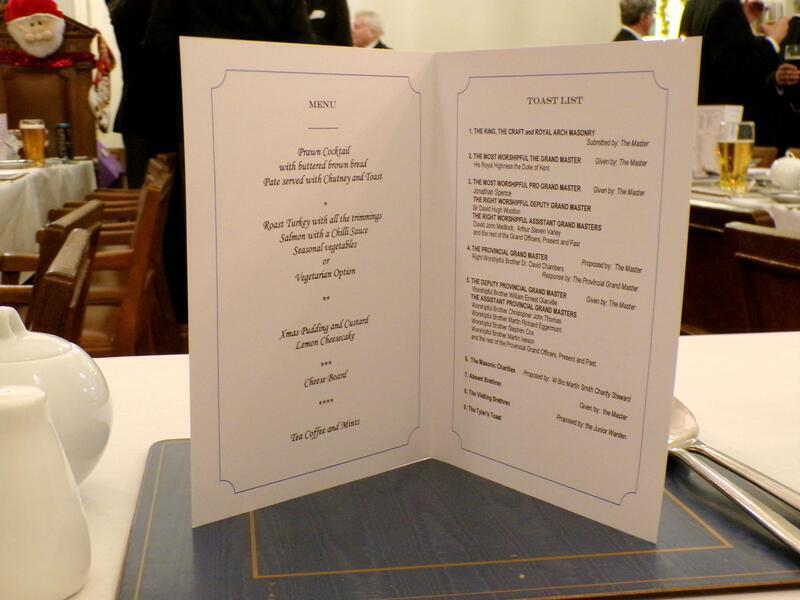 MENU
Prawn Cocktail
with buttered brown bread
Pate served with Chutney and Toast
*
Roast Turkey with all the trimmings
Salmon with a Chilli Sauce
Seasonal vegetables
or
Vegetarian Option
**
Xmas Pudding and Custard
Lemon Cheesecake
***
Cheese Board
****
Tea Coffee and Mints
TOAST LIST
1. THE KING, THE CRAFT and ROYAL ARCH MASONRY
Submitted by: The Master
2. THE MOST WORSHIPFUL THE GRAND MASTER Given by: The Master
His Royal Highness the Duke of Kent
3. THE MOST WORSHIPFUL PRO GRAND MASTER Given by: The Master
Jonathan Spence
THE RIGHT WORSHIPFUL DEPUTY GRAND MASTER
Sir David Hugh Wootton
THE RIGHT WORSHIPFUL ASSISTANT GRAND MASTERS
David John Medlock, Arthur Steven Varley
and the rest of the Grand Officers, Present and Past
4. THE PROVINCIAL GRAND MASTER Proposed by: The Master
Right Worshipful Brother Dr. David Chambers
Response by: The Provincial Grand Master
5. THE DEPUTY PROVINCIAL GRAND MASTER Given by: The Master
Worshipful Brother William Ernest Glanville
THE ASSISTANT PROVINCIAL GRAND MASTERS
Worshipful Brother Christopher John Thomas
Worshipful Brother Martin Richard Eggermont
Worshipful Brother Stephen Cox
Worshipful Brother Martin Iveson
and the rest of the Provincial Grand Officers, Present and Past.
6. The Masonic Charities Proposed by: W Bro Martin Smith Charity Steward
7. Absent Brethren
8. The Visiting Brethren Given by: the Master
9. The Tyler's Toast Proposed by: the Junior Warden